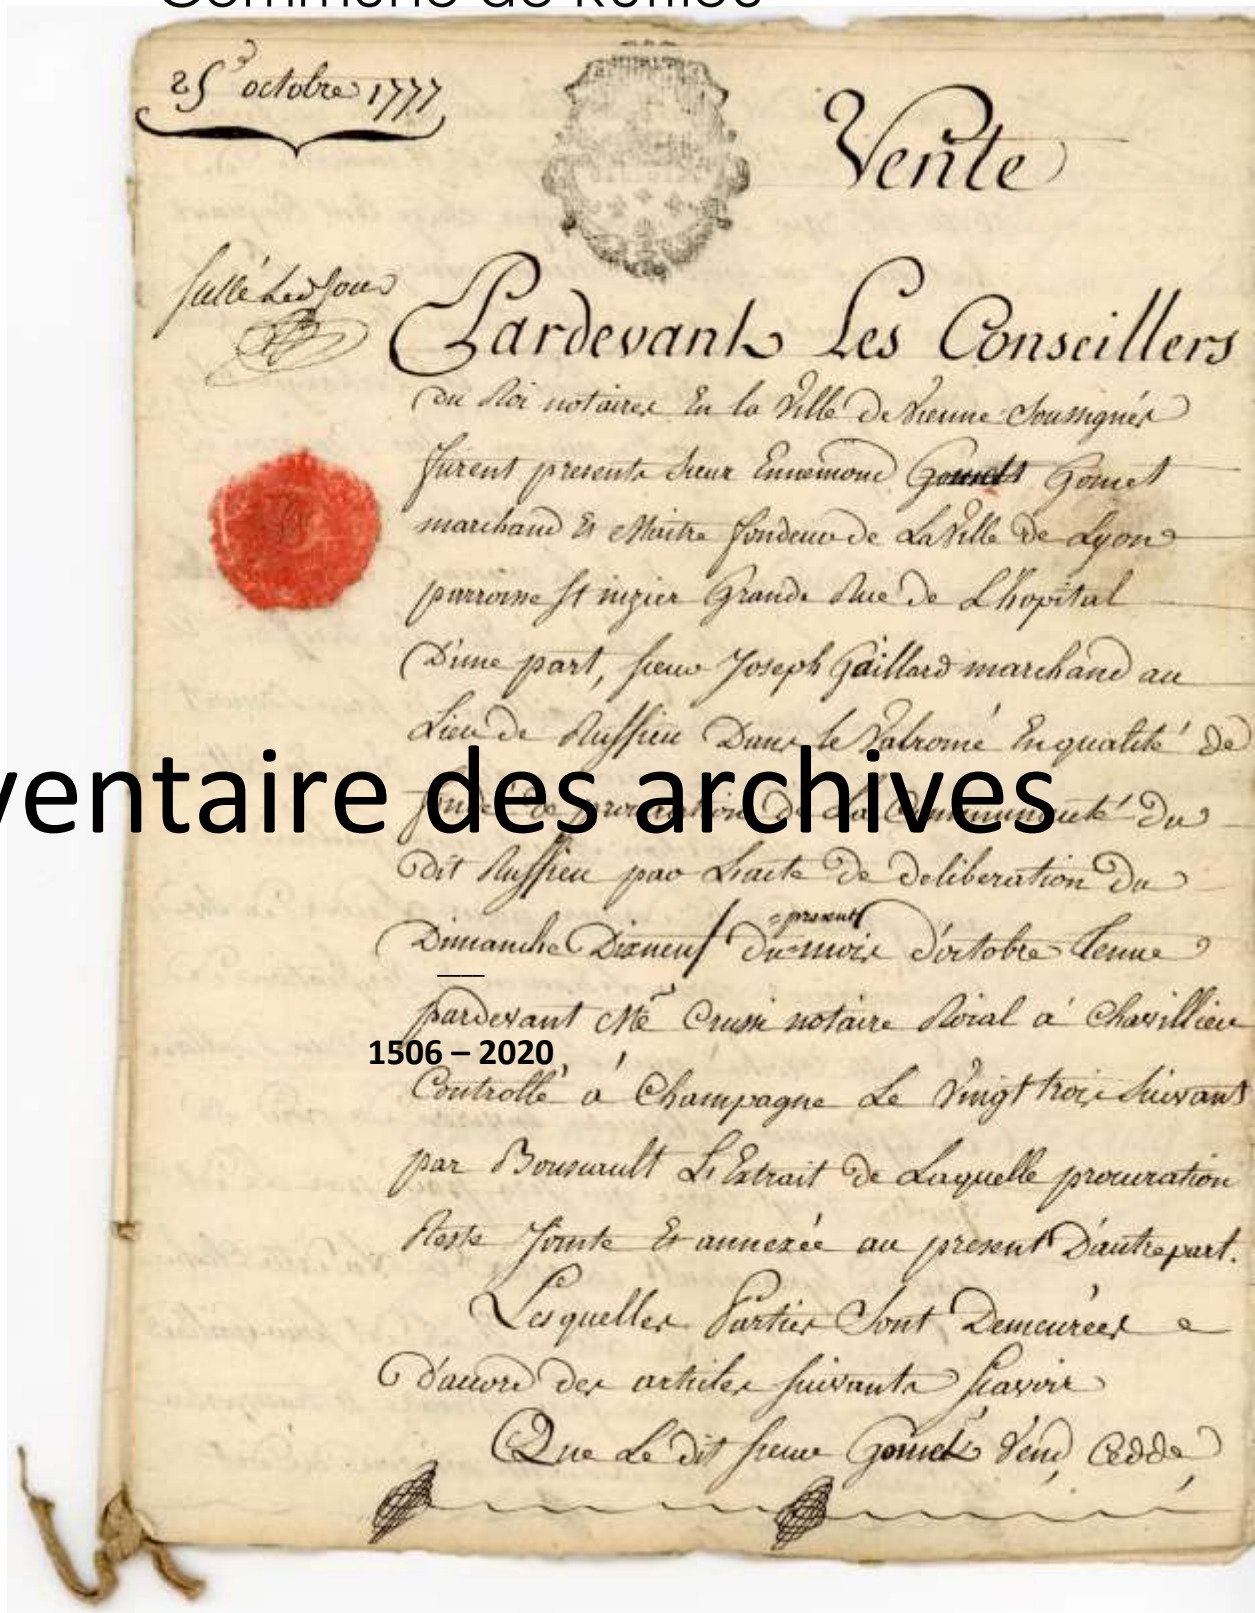 Commune de Ruffieu
25 octobre 1777
Vente
scellé Led Jour
Pardevant Les Conseillers
du Roi notaires En la Ville de Vienne soussignés
furent presents sieur Ennemond Gomet
marchand Et Maitre fondeur de La Ville de Lyon
parroisse st nizier Grande Rue de L'hopital
D'une part, sieur Joseph Gaillard marchand au
Lieu de Ruffieu Dans le Valromé En qualité de
ventaire des archives
fondé de procuration de La Communauté du
dit Ruffieu par L'acte de deliberation du
Dimanche Dixneuf du present mois d'octobre tenue
pardevant Me notaire Roial à Chavillieu
1506 – 2020
Controllé à Champagne Le Vingt trois suivant
par L'Extrait de Laquelle procuration
Reste Jointe Et annexée au present D'autre part.
Lesquelles Parties sont Demeurées
d'accord des articles suivants scavoir
Que Le dit sieur Gomet Vend Cedde